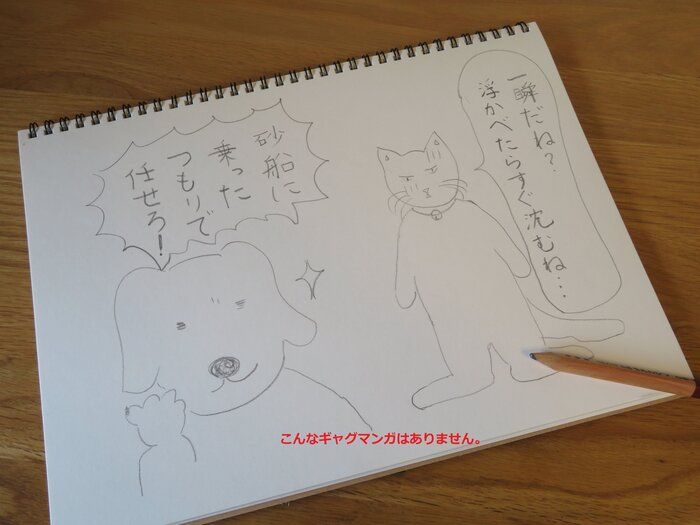 砂船に
乗った
つもりで
任せろ！
一瞬だね？
浮かべたらすぐ沈むね…
こんなギャグマンガはありません。